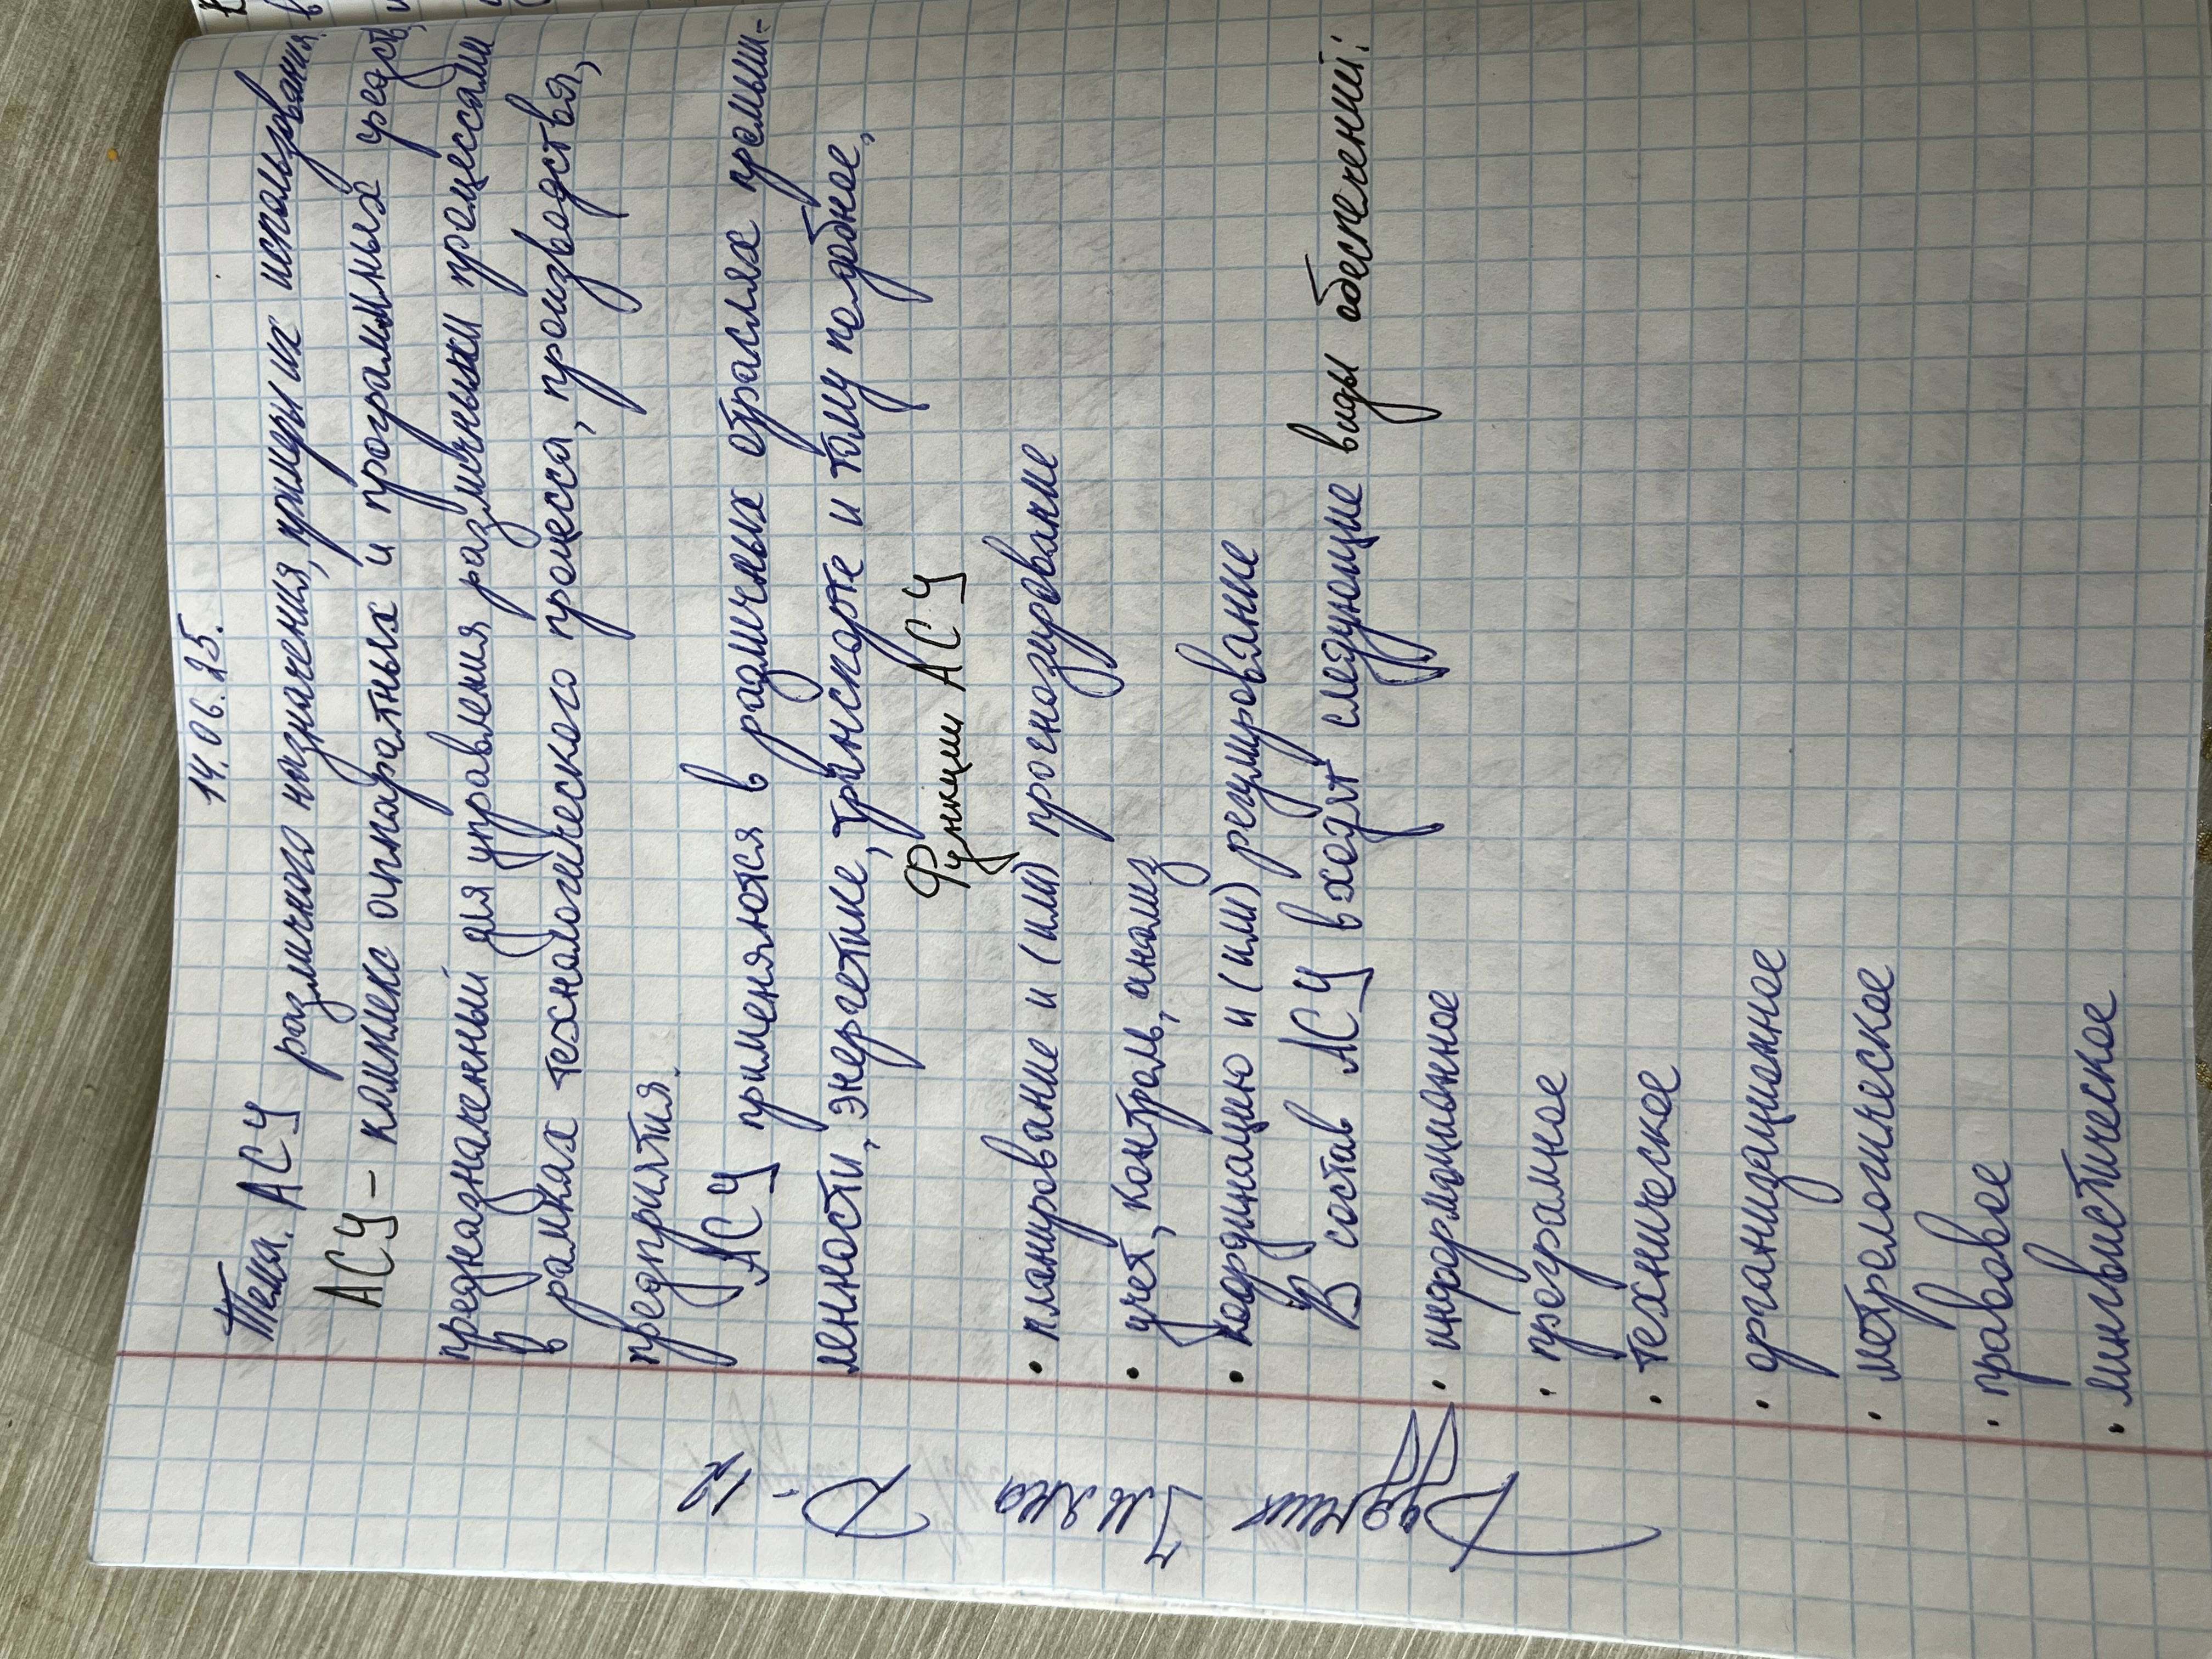 14.06.25.
Тема. АСУ различного назначения, примеры их использования.
АСУ - комплекс аппаратных и программных средств,
предназначенный для управления различными процессами
в рамках технологического процесса, производства,
предприятия.
АСУ применяются в различных отраслях промыш-
ленности, энергетике, транспорте и тому подобное,
Функции АСУ
• планирование и (или) прогнозирование
• учет, контроль, анализ
• координацию и (или) регулирование
В состав АСУ входят следующие виды обеспечений:
• информационное
• програмное
• техническое
• организационное
• метрологическое
• правовое
• лингвистическое